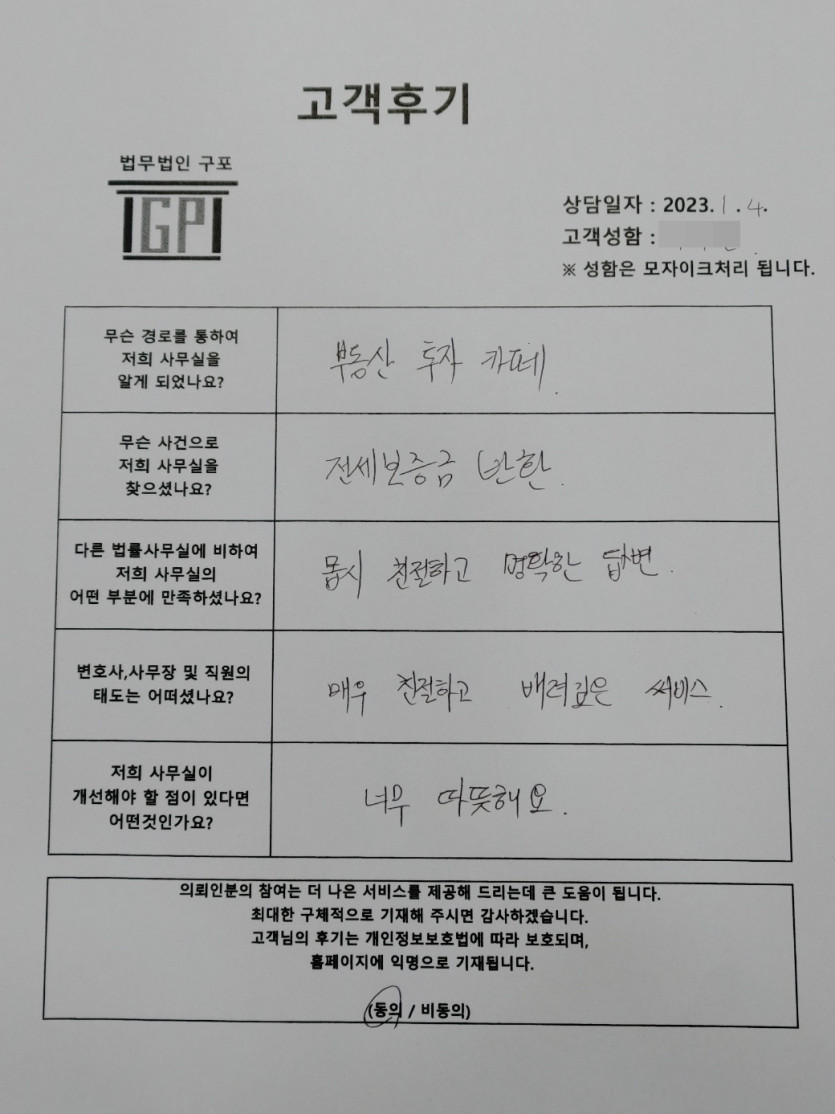 고객후기
법무법인 구포
IGPI
상담일자 : 2023. 1 . 4.
고객성함 :
※ 성함은 모자이크처리 됩니다.
무슨 경로를 통하여
저희 사무실을
알게 되었나요?
부동산 투자 카페.
무슨 사건으로
저희 사무실을
찾으셨나요?
전세보증금 반환.
다른 법률사무실에 비하여
저희 사무실의
어떤 부분에 만족하셨나요?
몹시 친절하고 명확한 답변.
변호사,사무장 및 직원의
태도는 어떠셨나요?
매우 친절하고 배려깊은 써비스.
저희 사무실이
개선해야 할 점이 있다면
어떤것인가요?
너무 따뜻해요.
의뢰인분의 참여는 더 나은 서비스를 제공해 드리는데 큰 도움이 됩니다.
최대한 구체적으로 기재해 주시면 감사하겠습니다.
고객님의 후기는 개인정보보호법에 따라 보호되며,
홈페이지에 익명으로 기재됩니다.
(동의 / 비동의)